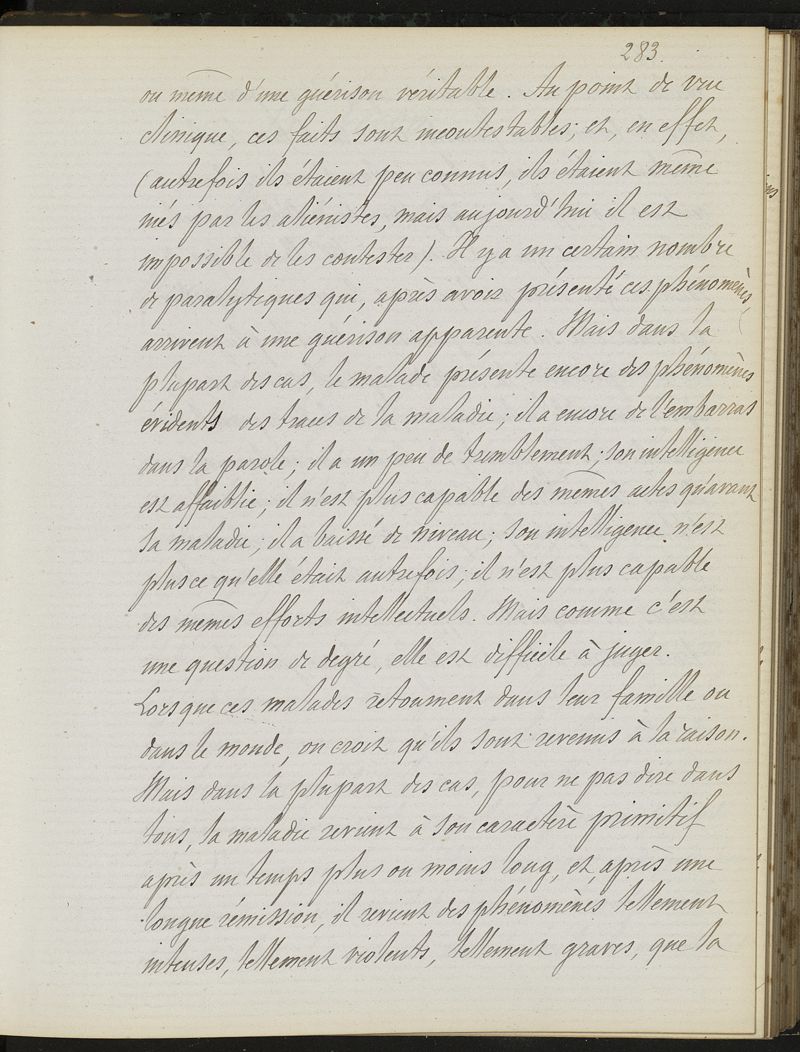 283.
ou même d'une guérison véritable. Au point de vue
clinique, ces faits sont incontestables; et, en effet,
(autrefois ils étaient peu connus, ils étaient même
niés par les aliénistes, mais aujourd'hui il est
impossible de les contester). Il y a un certain nombre
de paralytiques qui, après avoir présenté ces phénomènes,
arrivent à une guérison apparente. Mais dans la
plupart des cas, le malade présente encore des phénomènes
évidents des traces de la maladie; il a encore de l'embarras
dans la parole; il a un peu de tremblement; son intelligence
est affaiblie; il n'est plus capable des mêmes actes qu'avant
sa maladie; il a baissé de niveau; son intelligence n'est
plus ce qu'elle était autrefois; il n'est plus capable
des mêmes efforts intellectuels. Mais comme c'est
une question de degré, elle est difficile à juger.
Lorsque ces malades retournent dans leur famille ou
dans le monde, on croit qu'ils sont revenus à la raison.
Mais dans la plupart des cas, pour ne pas dire dans
tous, la maladie revient à son caractère primitif
après un temps plus ou moins long, et après une
longue rémission, il revient des phénomènes tellement
intenses, tellement violents, tellement graves, que la